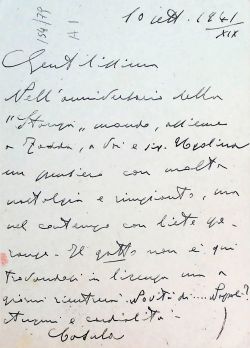 154/79
A 1
10 sett. 1941
XIX
Gentilissima
Nell'anniversario della
"Stampa" mando, assieme
a Zadda, a Voi e sig. Messina
un pensiero con molta
nostalgia e rimpianto, ma
nel contempo con liete spe-
ranze. Il gatto non è qui
trovandosi in licenza ma a
giorni rientrerà. Novità di ... Popoli?
Auguri e cordialità
Casula